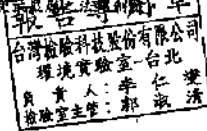 報告專用章
台灣檢驗科技股份有限公司
環境實驗室-台北
負責人:李仁澄
檢驗室主管:郭淑清